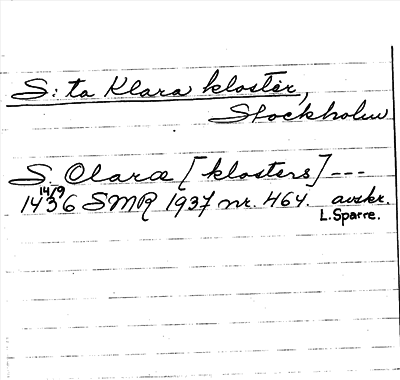 S:ta Klara kloster,
Stockholm
S. Claræ [klosters] ---
14/9
1436 SMR 1937 nr. 464. avskr.
L. Sparre.